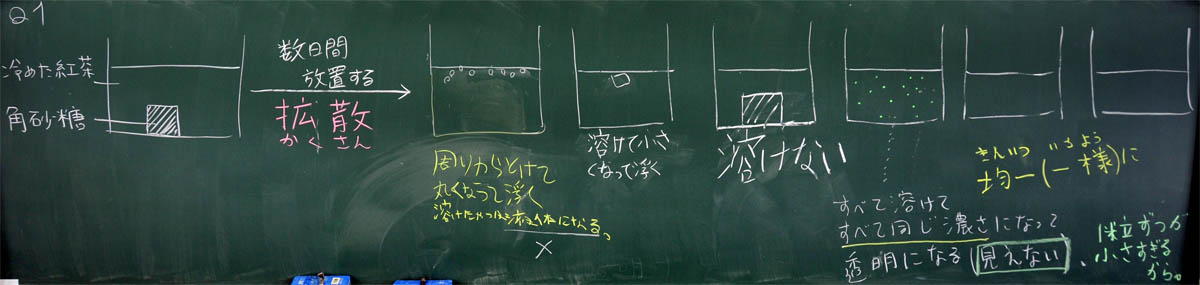 Q1
冷めた紅茶
角砂糖
数日間
放置する
拡散
かくさん
周りからとけて
丸くなって浮く
溶けたやつは液体になる。
×
溶けて小さ
くなって浮く
溶けない
すべて溶けて
すべて同じ濃さになって
透明になる(見えない)、
きんいつ いちよう
均一(一様)に
1粒ずつが
小さすぎる
から。